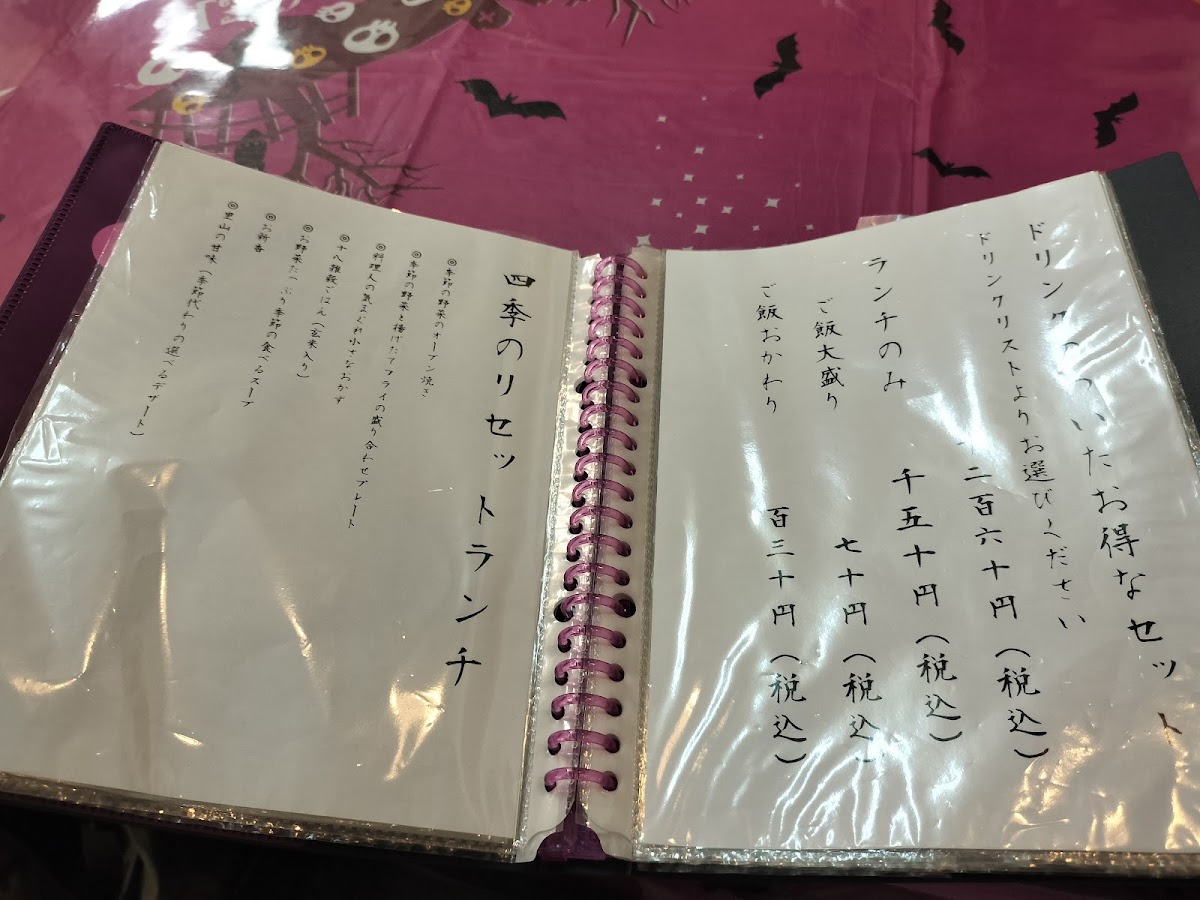 ドリンクのついたお得なセット
ドリンクリストよりお選びください
二百六十円（税込）
ランチのみ 千五十円（税込）
ご飯大盛り 七十円（税込）
ご飯おかわり 百三十円（税込）
四季のリセットランチ
◎季節の野菜のオーブン焼き
◎季節の野菜と揚げたてフライの盛り合わせプレート
◎料理人の気まぐれ小さなおかず
◎十八雑穀ごはん（玄米入り）
◎お野菜たっぷり季節の食べるスープ
◎お新香
◎里山の甘味（季節代わりの選べるデザート）